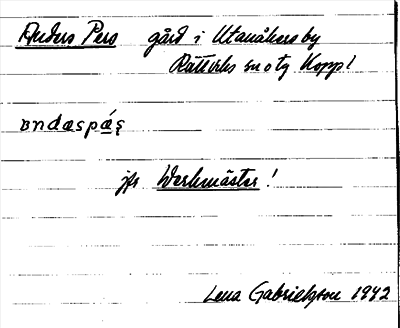 Anders Pers gård i Utanåkers by
Rättviks sn oty Koppl
andæspæ̀ş
jfr Werkmäster!
Lena Gabrielsson 1942